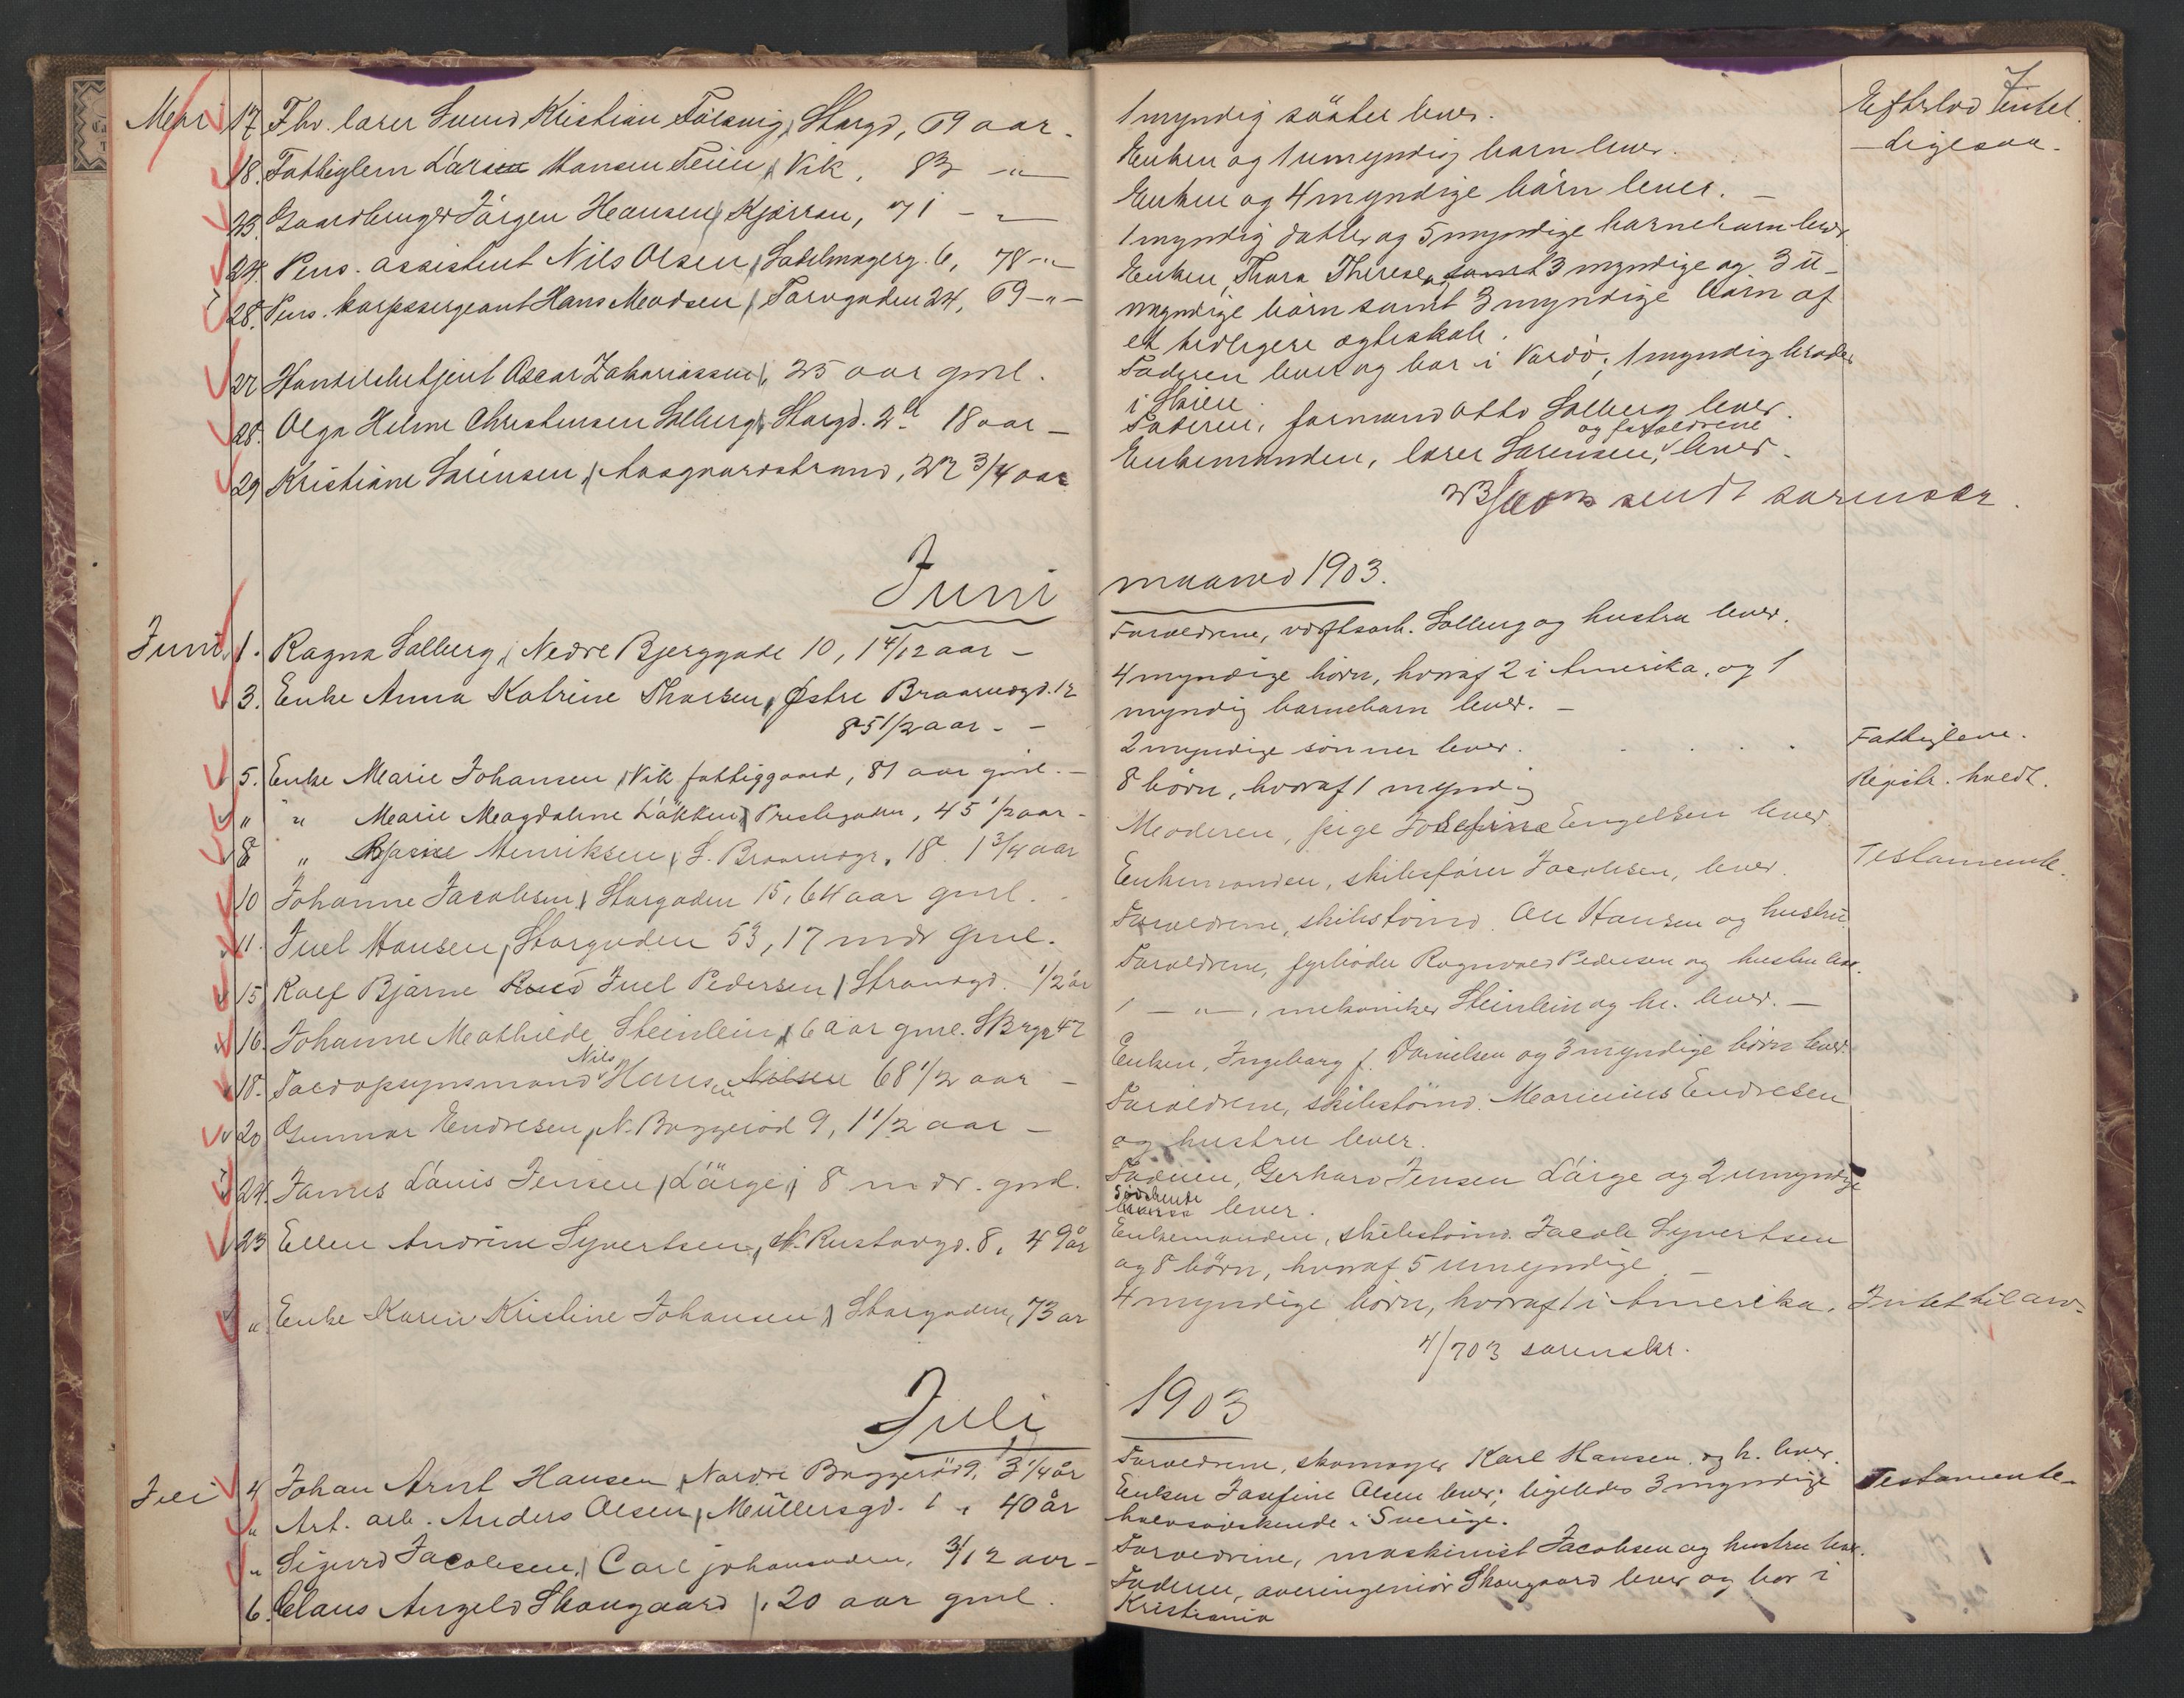 Mai 17. Fhv. lærer Svend Kristian Storgd, 69 aar -
18. Fattiglem Hansen Teien, Vik, 83 -"-
23. Gaardbruger Jørgen Hansen, Kjærran, 71 - "
24. Pens. assistent Nils Olsen, Sadelmagerg. 6, 78 -"-
28. Pens. korpssergeant Hans Madsen, Torvgaden 24, 69 -"-
27 Handelsbetjent Oscar Zakariassen, 25 aar gml.
28. Olga Helene Christensen Solberg, Storgd. 2 b 18 aar -
29 Kristiane Sørensen, Aasgaardstrand, 22 3/4 aar
Juni
Juni 1. Ragna Solberg, Nedre Bjerggade 10, 1 4/12 aar -
3. Enke Anna Katrine Thorsen, Østre Braarudgd. 12
85 1/2 aar - -
5. Enke Marie Johansen, Vik fattiggaard, 81 aar gml. -
" " Marie Magdalene Løkken, Prestegaden, 45 1/2 aar -
8 " Henriksen, S. Braarudgr. 18. 1 3/4 aar
10 Johanne Jacobsen, Storgaden 15, 64 aar gml. -
11. Juel Hansen, Storgaden 53, 17 mdr gml.
15 Rolf Bjarne Juel Pedersen, Strandgd. 1/2 år
16. Johanne Mathilde Steinlein, 6 aar gml. 42
Nils
18. Hansen 68 1/2 aar -
20 Gunnar Endresen, N. Baggerød 9, 1 1/2 aar -
24. James Louis Jensen, Lørge, 8 mdr. gml.
23 Ellen Andrine Syvertsen, N. Rustadgd. 8, 49 år
" Enke Karen Kristine Johansen, Storgaden, 73 ar
Juli
Juli 4 Johan Arnt Hansen, Nordre Baggerød 9, 3 1/4 år
" Art. arb. Anders Olsen, Müllersgd. 1, 40 år
" Sigurd Jacobsen, Carl johansaden, 3/12 aar -
6. Claus Angeld Skougaard, 20 aar gml.
1 myndig søster lever. Efterlod Intet.
Enken og 1 umyndig barn lever. - ligesaa -
Enken og 4 myndige børn lever. -
1 myndig datter og 5 myndige barnebarn lever
Enken, Thora Therese, og 3 myndige og 3 u-
myndige børn samt 3 myndige børn af
et tidligere ægteskab.
Faderen lever og bor i Vardø; 1 myndig broder
i Skien.
Faderen, formand Otto Solberg lever.
og forældrene
Enkemanden, lærer Sørensen, lever -
sendt sorenskr.
maaned 1903.
Forældrene, værftsarb. Solberg og hustru lever.
4 myndige børn, hvoraf 2 i Amerika, og 1
myndig barnebarn lever. -
2 myndige sønner lever. . . . . Fattiglem.
8 børn, hvoraf 1 myndig Registr. holdt.
Moderen, pige Josefine Engelsen lever
Enkemanden, skibsfører Jacobsen, lever. Testamente.
Forældrene, skibstømd. Ole Hansen og hustru.
Forældrene, fyrbøder Ragnvald Pedersen og hustru lever.
1 - " -, mekaniker Steinlein og h. lever. -
Enken, Ingeborg f. Danielsen og 3 myndige børn lever.
Forældrene, skibstømd. Marinius Endresen
og hustru lever.
Faderen, Gerhard Jensen Lørge og 2 umyndige
Sødskende
lever.
Enkemanden, skibstømd. Jacob Syvertsen
og 8 børn, hvoraf 5 umyndige -
4 myndige børn, hvoraf 1 i Amerika. Intet til arv.
4/7 03 sorenskr.
1903
Forældrene, skomager Karl Hansen og h. lever.
Enken Josefine Olsen lever; ligeledes 3 myndige Testamente.
halvsødskende i Sverige.
Forældrene, maskinist Jacobsen og hustru lever.
Faderen, overingeniør Skougaard lever og bor i
Kristiania